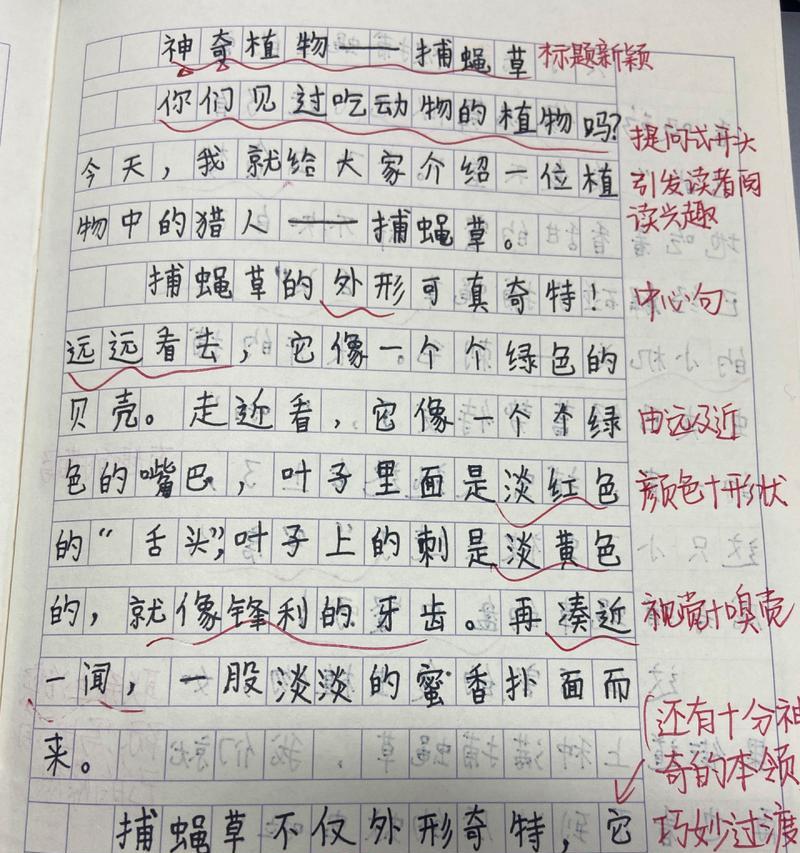 神奇植物——捕蝇草 标题新颖
你们见过吃动物的植物吗?
提问式开头
今天，我就给大家介绍一位植
引发读者阅
物中的猎人——捕蝇草。
读兴趣
捕蝇草的外形可真奇特!
中心句
远远看去，它像一个个绿色的
贝壳。走近看，它像一个个绿
由远及近
色的嘴巴，叶子里面是淡红色
颜色+形状
的“舌头”,叶子上的刺是淡黄色
的，就像锋利的牙齿。再凑近
视觉+嗅觉
一闻，一股淡淡的蜜香扑面而
(还有十分神
来。
奇的本领
捕蝇草不仅外形奇特，它
巧妙过渡